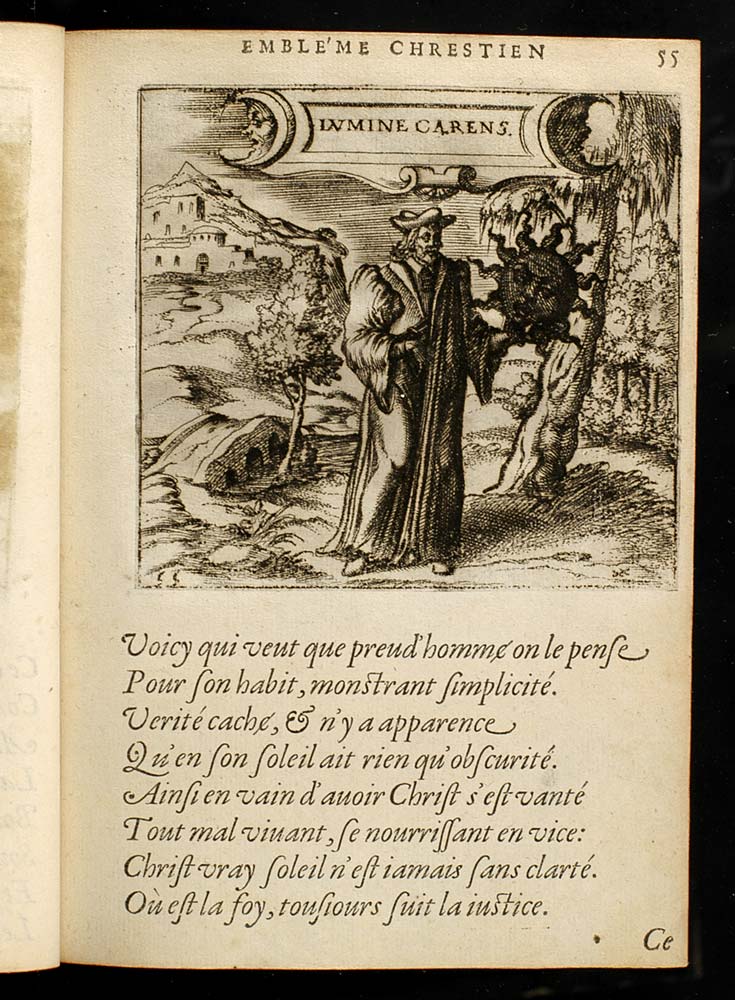 EMBLE'ME CHRESTIEN
55
LVMINE CARENS.
Voicy qui veut que preud'homme on le penſe
Pour ſon habit, monſtrant ſimplicité.
Verité cache, & n'y a apparence
Qu'en ſon ſoleil ait rien qu'obſcurité.
Ainſi en vain d'auoir Chriſt s'eſt vanté
Tout mal viuant, ſe nourriſſant en vice:
Chriſt vray ſoleil n'eſt iamais ſans clarté.
Où eſt la foy, touſiours ſuit la iuſtice.
Ce